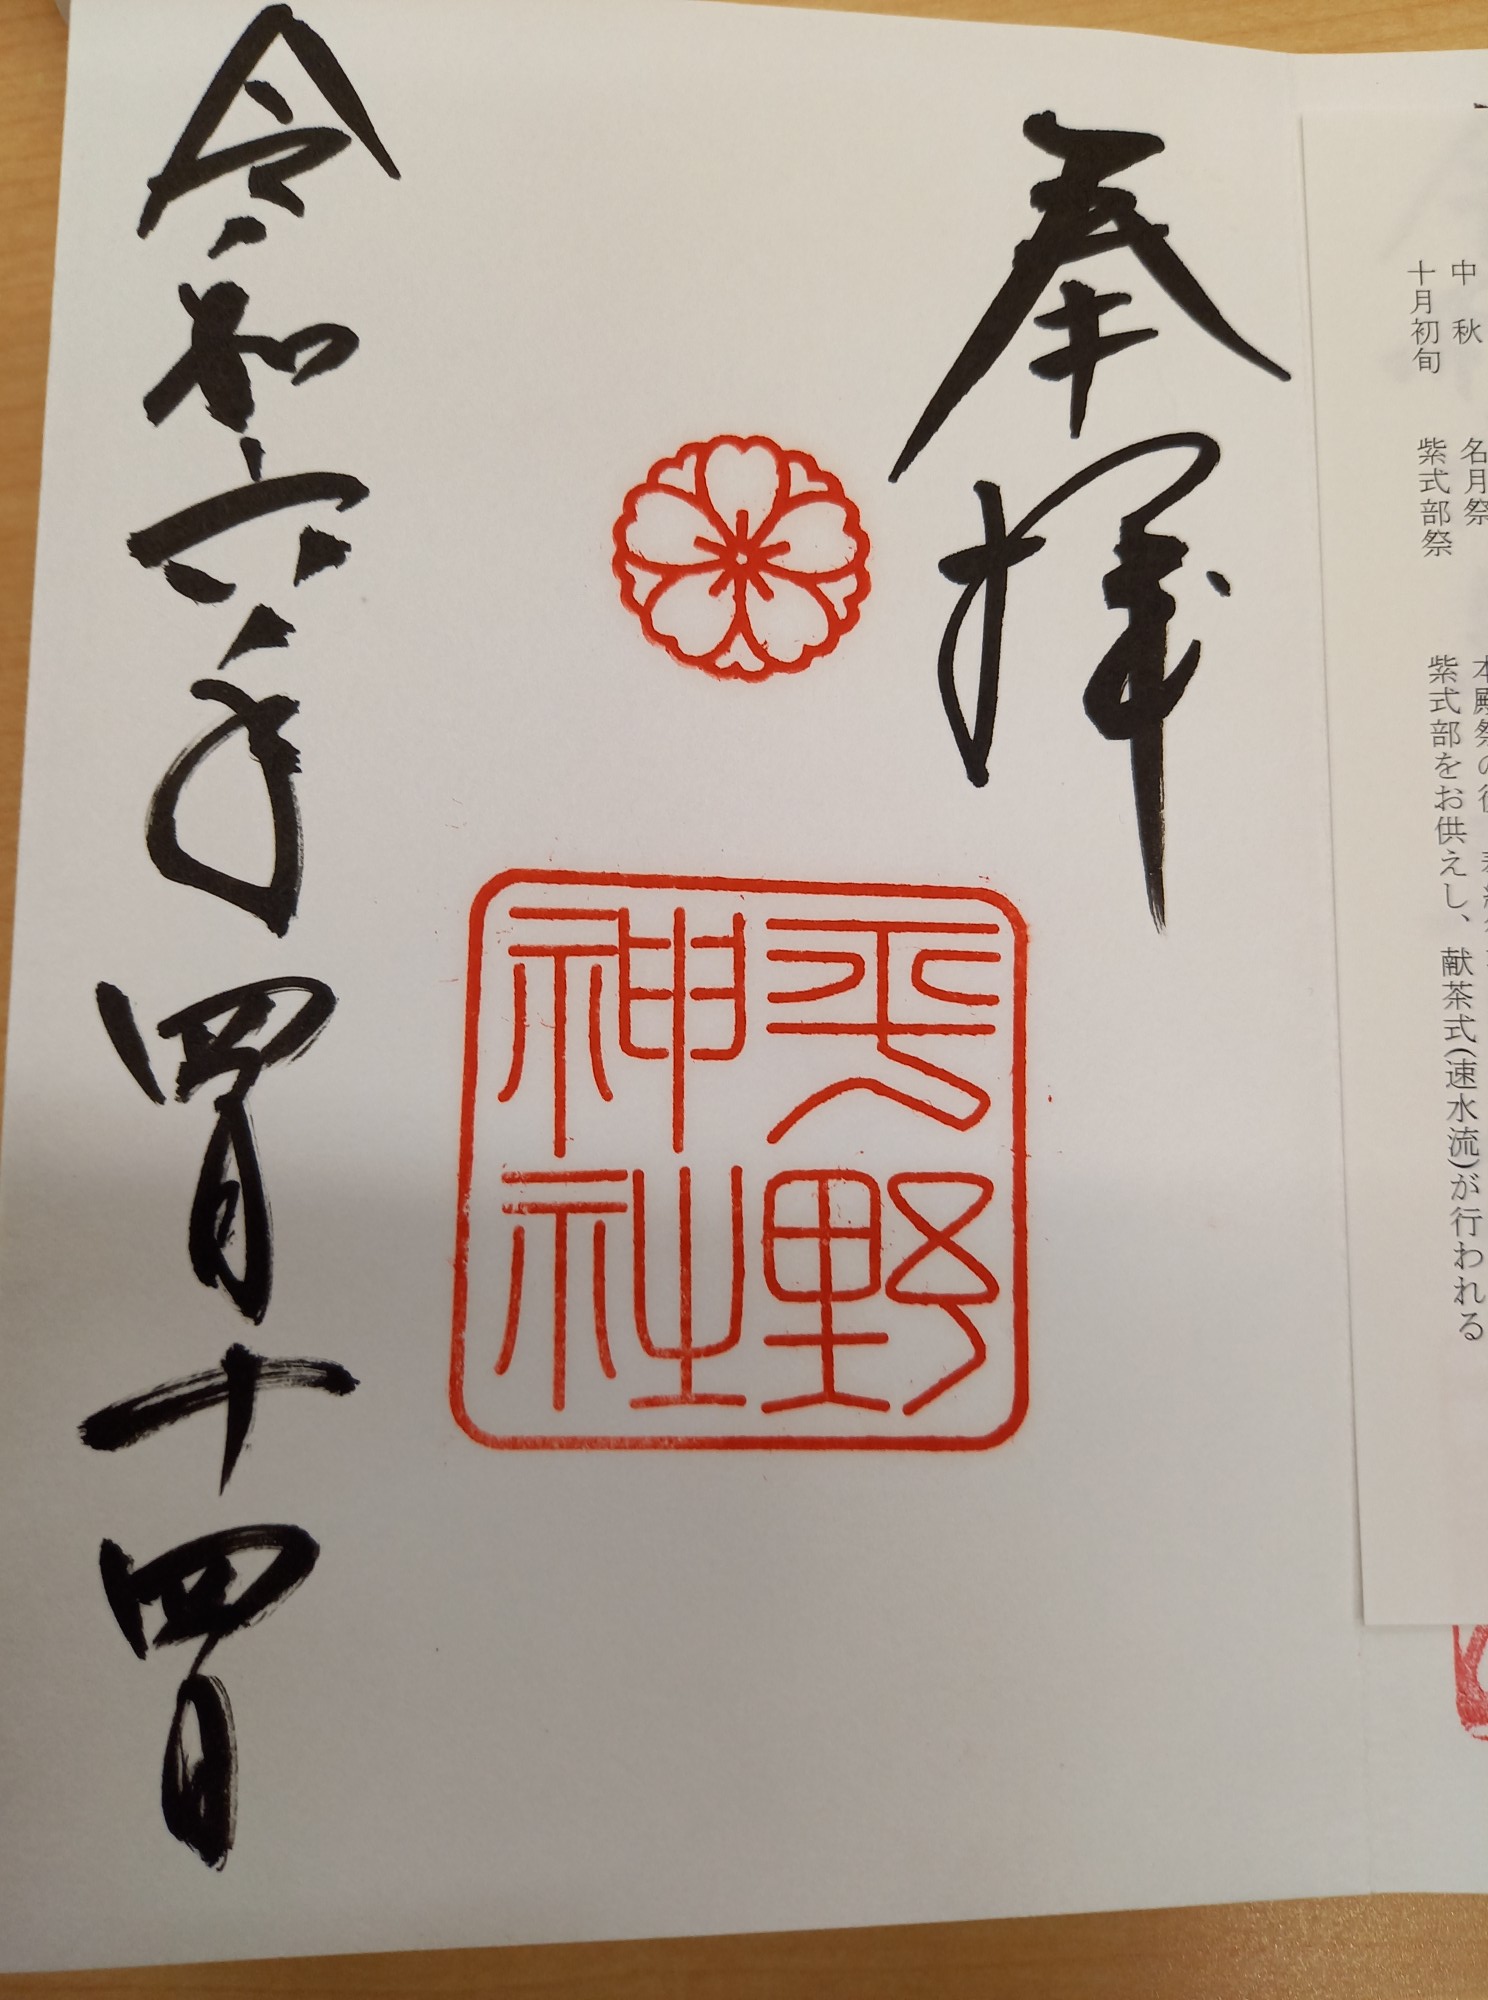 中 秋
名月祭
十月初旬
紫式部祭
紫式部をお供えし、献茶式(速水流)が行われる
奉拝
平野
神社
令和六年四月十四日